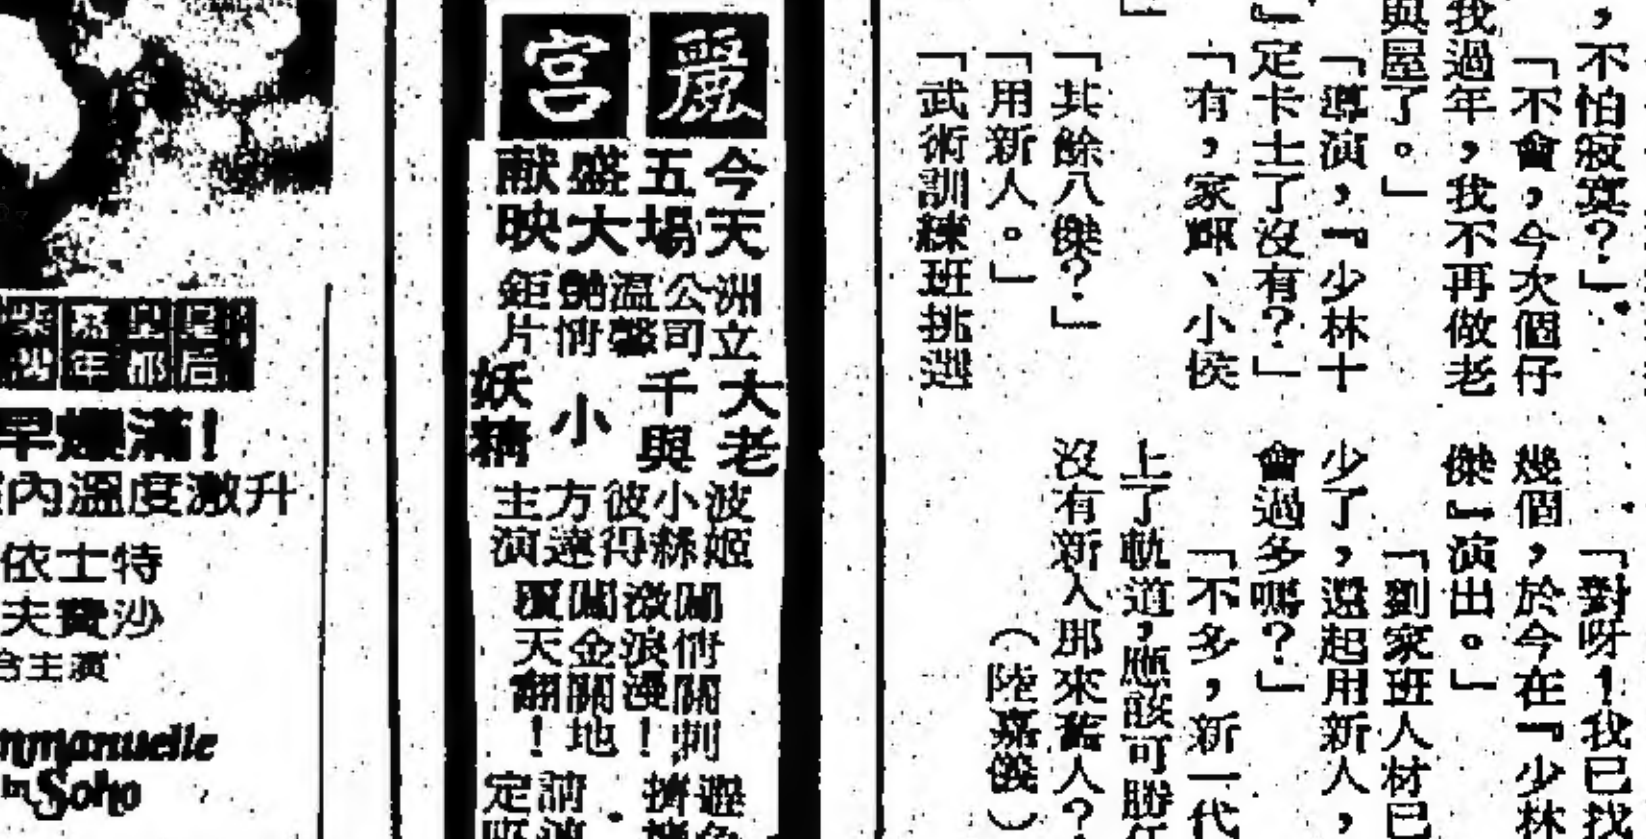 ，不怕寂寞？」
「不會，今次個仔
我過年，我不再做老
與屋了。」
「導演，『少林十
』定卡士了沒有？」
「有，家輝、小侯
」
「其餘八傑？」
「用新人。」
「武術訓練班挑選
「對呀！我已找
幾個，於今在『少林
傑』演出。」
「劉家班人材已
少了，還起用新人，
會過多嗎？」
「不多，新一代
上了軌道，應該可勝任
沒有新人那來舊人？
（陸嘉儀）
麗宮
今天
五場
盛大
献映
洲立
公司
溫馨
艷情
鉅片
大老
千與
小
妖精
波姬
小絲
彼得
方達
主演
鬧情鬧刺
激浪漫！
鬧金鬧地
覆天翻！
皇后
皇都
早爆滿！
內溫度激升
依士特
夫費沙
合主演
mmanuelle
in Soho